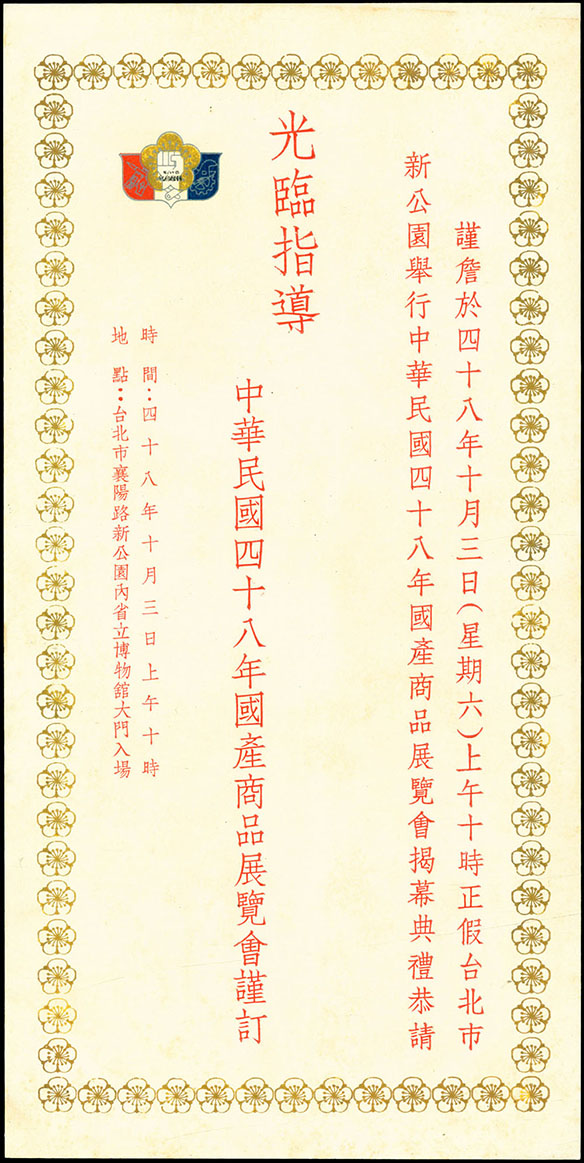 謹詹於四十八年十月三日(星期六)上午十時正假台北市
新公園舉行中華民國四十八年國產商品展覽會揭幕典禮恭請
光臨指導
中華民國四十八年國產商品展覽會謹訂
時間：四十八年十月三日上午十時
地點：台北市襄陽路新公園內省立博物館大門入場